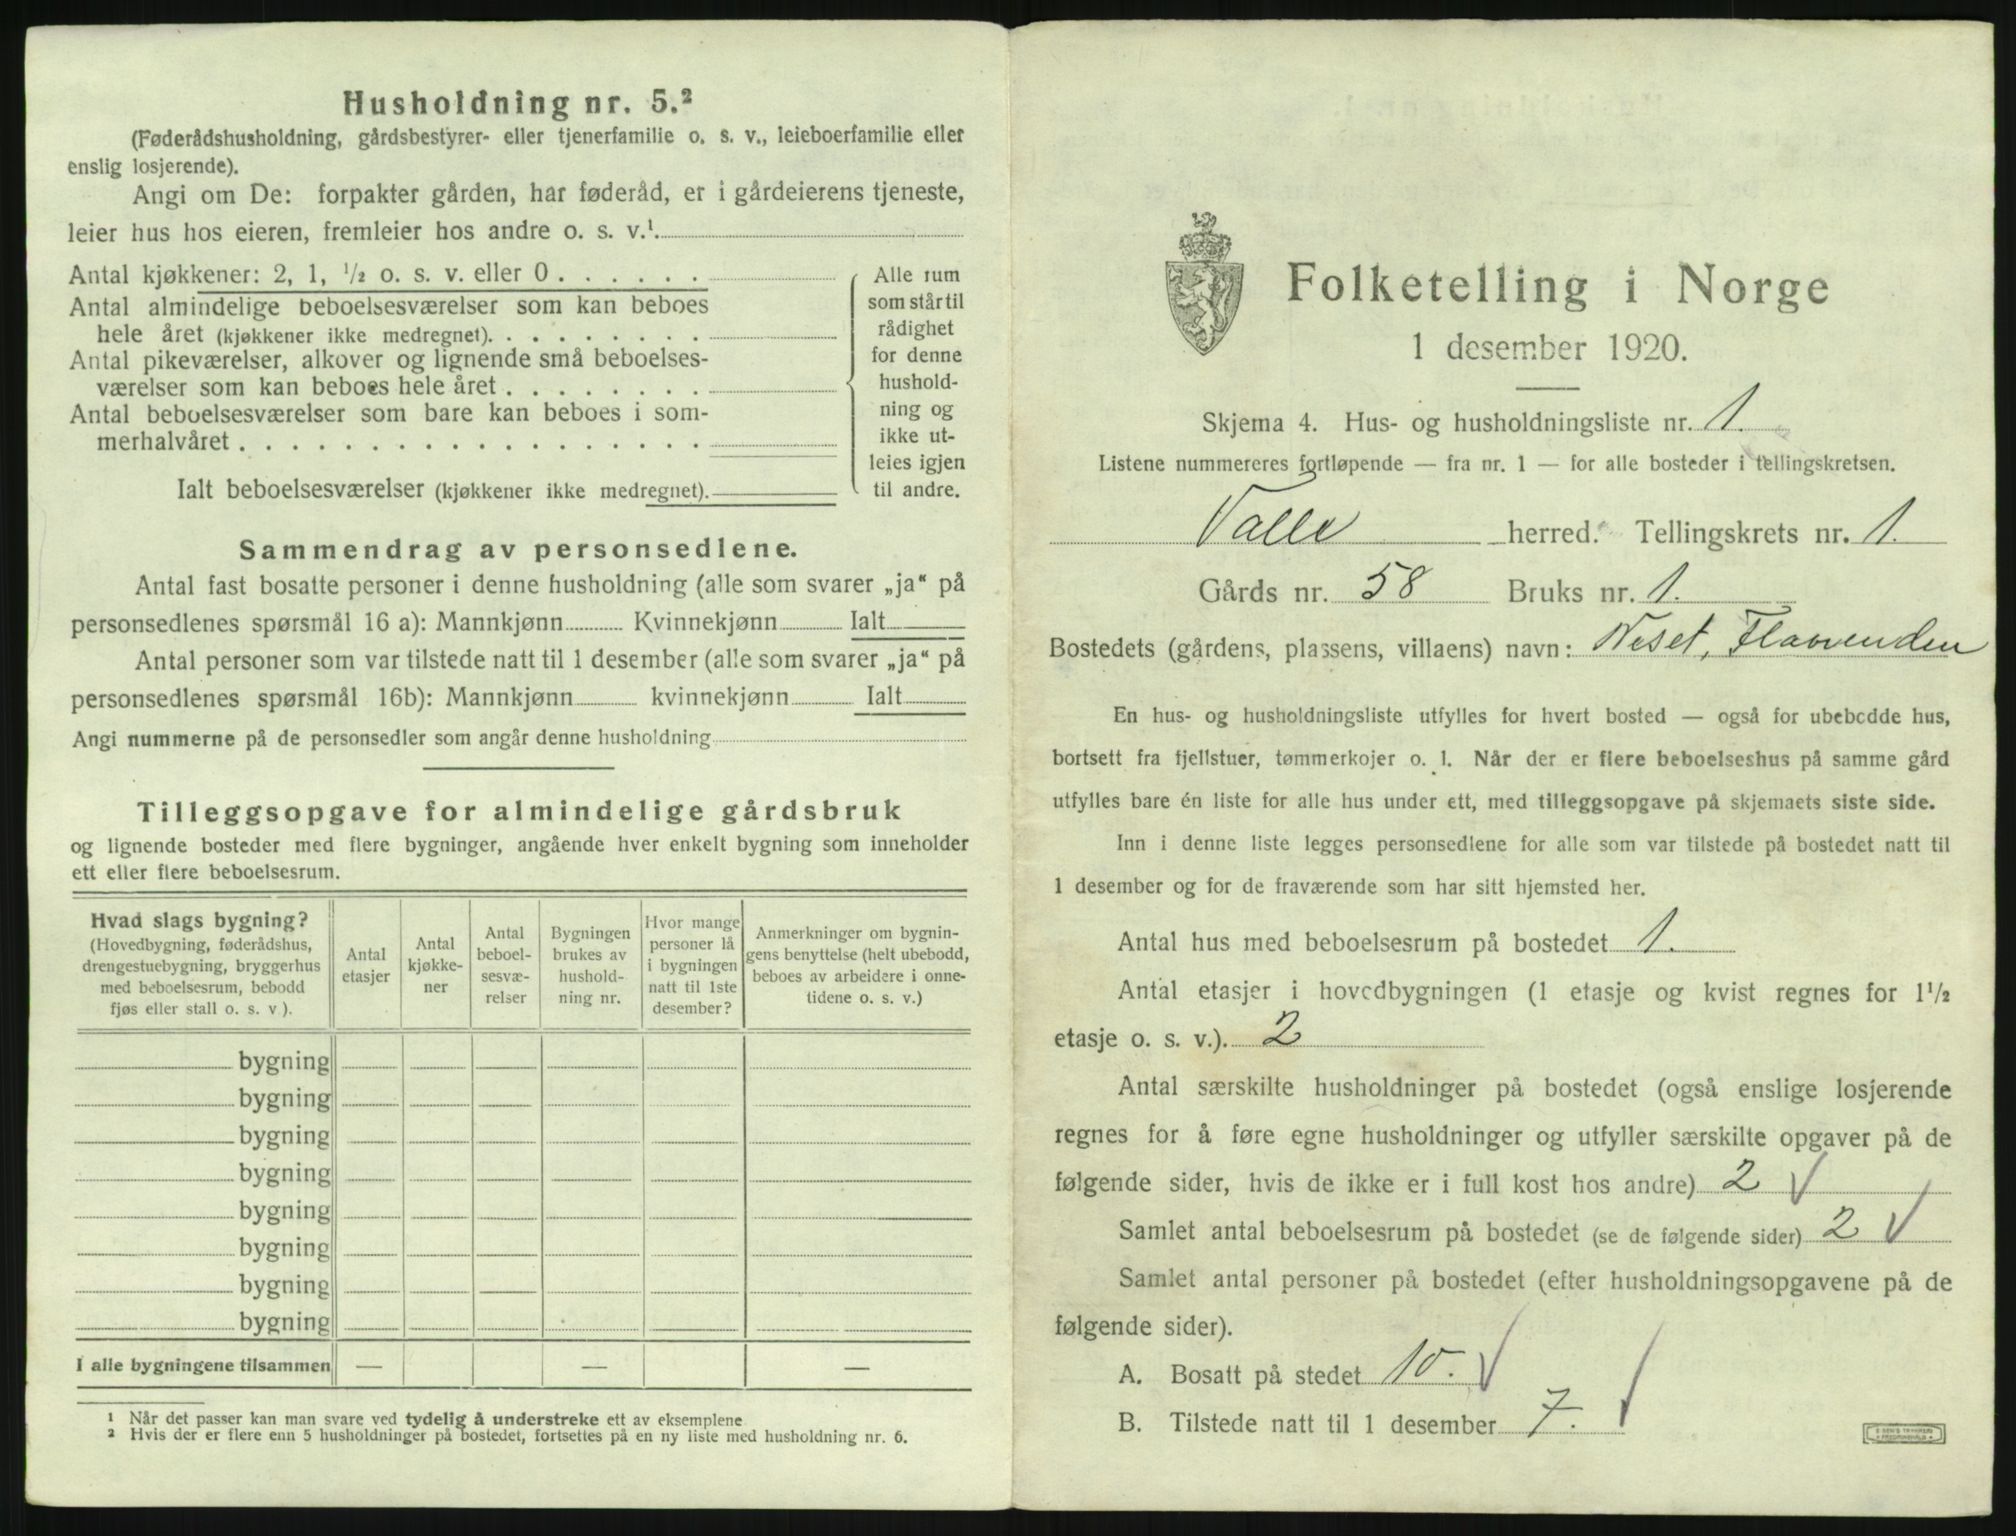 Husholdning nr. 5.²
(Føderådshusholdning, gårdsbestyrer- eller tjenerfamilie o. s. v., leieboerfamilie eller
enslig losjerende).
Angi om De: forpakter gården, har føderåd, er i gårdeierens tjeneste,
leier hus hos eieren, fremleier hos andre o. s. v.¹
Antal kjøkkener: 2, 1, ½ o. s. v. eller 0 . . . . . .
Antal almindelige beboelsesværelser som kan beboes
hele året (kjøkkener ikke medregnet). . . . . . . . .
Antal pikeværelser, alkover og lignende små beboelses-
værelser som kan beboes hele året . . . . . . . .
Antal beboelsesværelser som bare kan beboes i som-
merhalvåret . . . . . . . . . . . . . . . . . . .
Ialt beboelsesværelser (kjøkkener ikke medregnet).
Alle rum
som står til
rådighet
for denne
hushold-
ning og
ikke ut-
leies igjen
til andre.
Sammendrag av personsedlene.
Antal fast bosatte personer i denne husholdning (alle som svarer „ja“ på
personsedlenes spørsmål 16 a): Mannkjønn Kvinnekjønn Ialt
Antal personer som var tilstede natt til 1 desember (alle som svarer „ja“ på
personsedlenes spørsmål 16b): Mannkjønn kvinnekjønn Ialt
Angi nummerne på de personsedler som angår denne husholdning
Tilleggsopgave for almindelige gårdsbruk
og lignende bosteder med flere bygninger, angående hver enkelt bygning som inneholder
ett eller flere beboelsesrum.
Hvad slags bygning?
(Hovedbygning, føderådshus,
drengestuebygning, bryggerhus
med beboelsesrum, bebodd
fjøs eller stall o. s. v ).
Antal
etasjer
Antal
kjøkke-
ner
Antal
beboel-
sesvæ-
relser
Bygningen
brukes av
hushold-
ning nr.
Hvor mange
personer lå
i bygningen
natt til 1ste
desember?
Anmerkninger om bygnin-
gens benyttelse (helt ubebodd,
beboes av arbeidere i onne-
tidene o. s. v.)
bygning
bygning
bygning
bygning
bygning
bygning
bygning
bygning
I alle bygningene tilsammen — — —
¹ Når det passer kan man svare ved tydelig å understreke ett av eksemplene
² Hvis der er flere enn 5 husholdninger på bostedet, fortsettes på en ny liste med husholdning nr. 6.
Folketelling i Norge
1 desember 1920.
Skjema 4. Hus- og husholdningsliste nr. 1.
Listene nummereres fortløpende — fra nr. 1 — for alle bosteder i tellingskretsen.
Valle herred. Tellingskrets nr. 1.
Gårds nr. 58 Bruks nr. 1.
Bostedets (gårdens, plassens, villaens) navn: Neset, Flaarenden
En hus- og husholdningsliste utfylles for hvert bosted — også for ubebodde hus,
bortsett fra fjellstuer, tømmerkojer o. l. Når der er flere beboelseshus på samme gård
utfylles bare én liste for alle hus under ett, med tilleggsopgave på skjemaets siste side.
Inn i denne liste legges personsedlene for alle som var tilstede på bostedet natt til
1 desember og for de fraværende som har sitt hjemsted her.
Antal hus med beboelsesrum på bostedet 1.
Antal etasjer i hovedbygningen (1 etasje og kvist regnes for 1½
etasje o. s. v.). 2
Antal særskilte husholdninger på bostedet (også enslige losjerende
regnes for å føre egne husholdninger og utfyller særskilte opgaver på de
følgende sider, hvis de ikke er i full kost hos andre) 2 √
Samlet antal beboelsesrum på bostedet (se de følgende sider) 2 √
Samlet antal personer på bostedet (efter husholdningsopgavene på de
følgende sider).
A. Bosatt på stedet 10. √
B. Tilstede natt til 1 desember 7. √